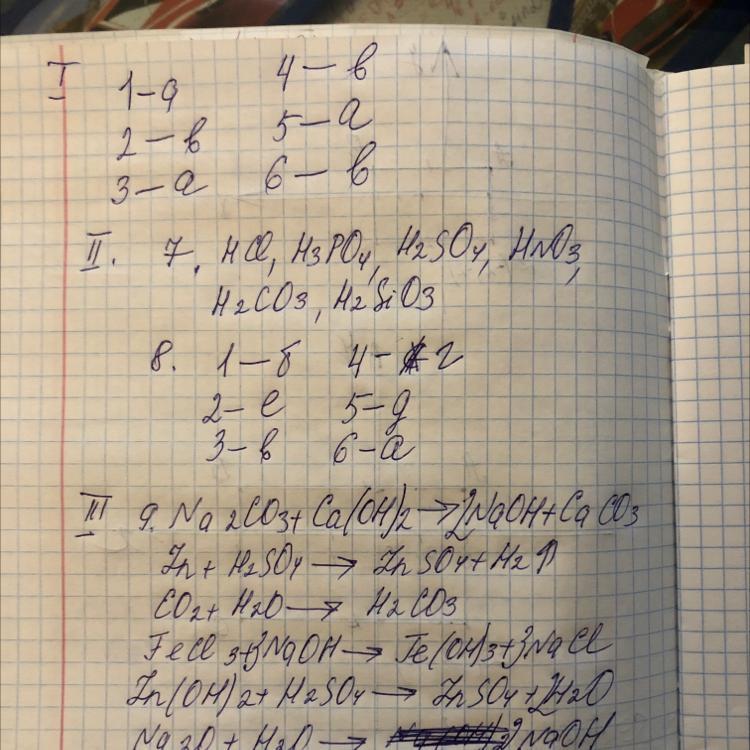 I 1-а 4-в
2-в 5-а
3-а 6-в
II. 7. HCl, H3PO4, H2SO4, HNO3,
H2CO3, H2SiO3
8. 1-б 4-г
2-е 5-д
3-в 6-а
III 9. Na2CO3+Ca(OH)2→2NaOH+CaCO3
Zn+H2SO4→ZnSO4+H2↑
CO2+H2O→H2CO3
FeCl3+3NaOH→Fe(OH)3+3NaCl
Zn(OH)2+H2SO4→ZnSO4+2H2O
Na2O+H2O→2NaOH